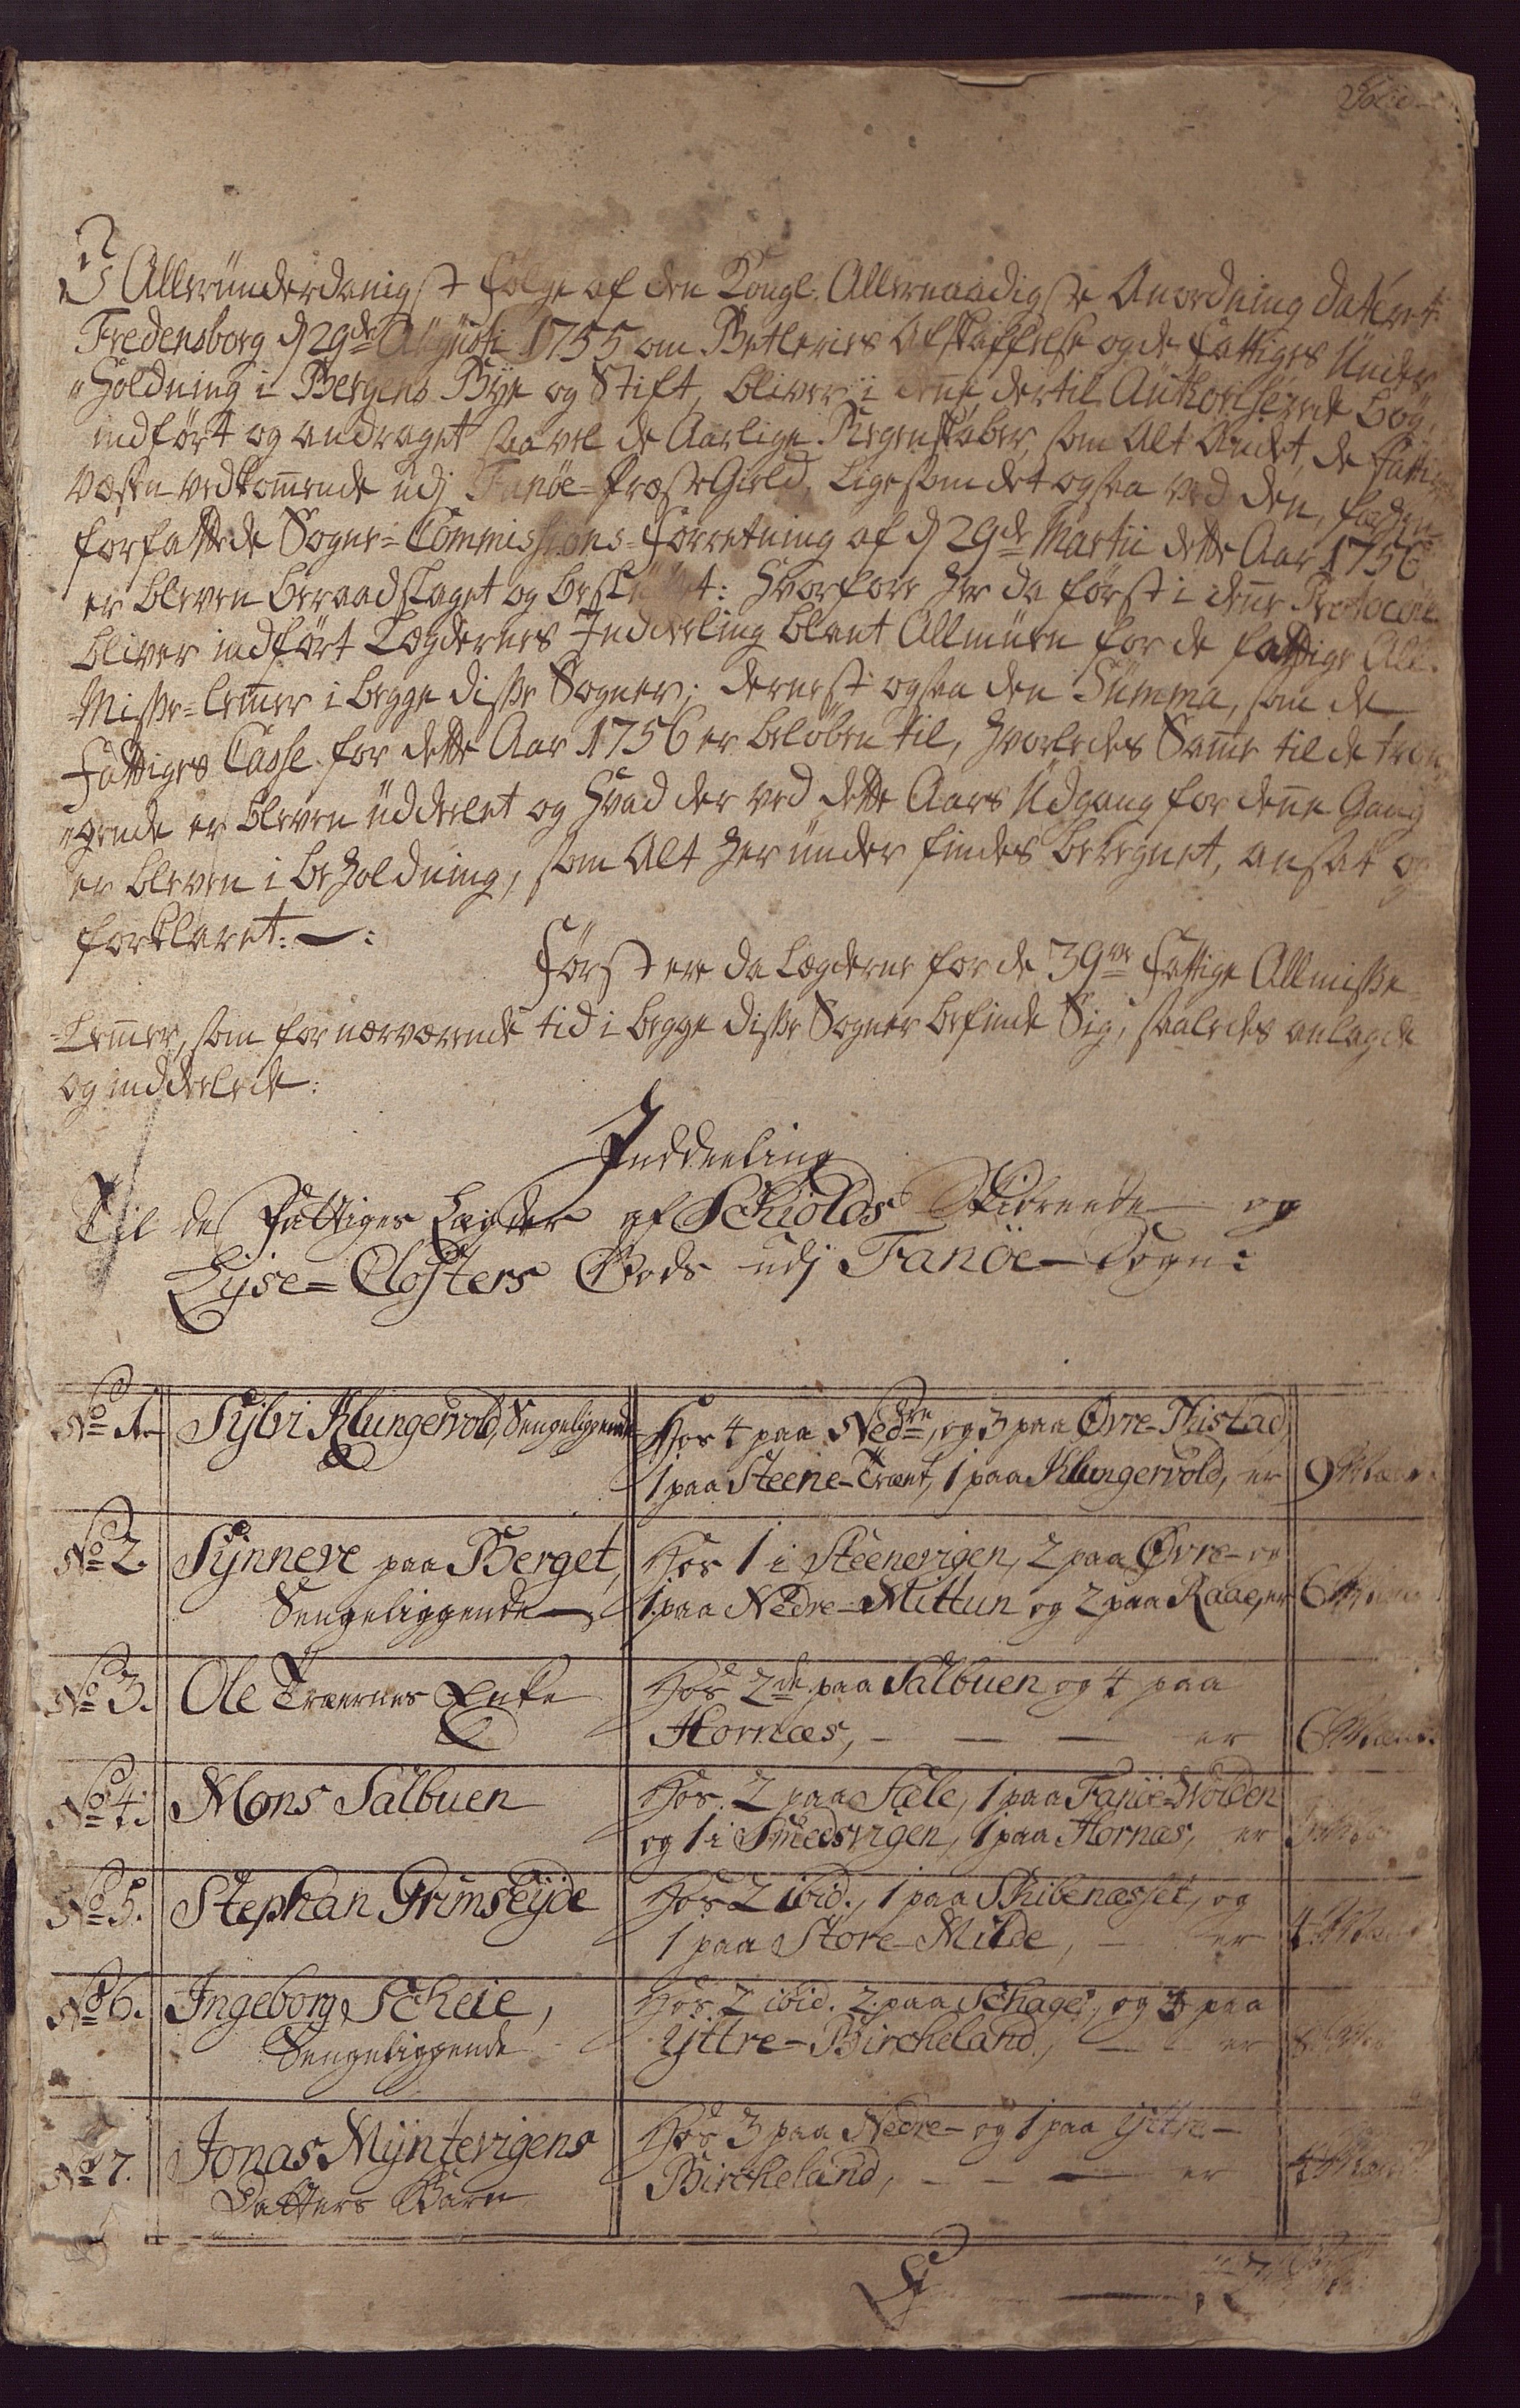 Folio
I Allerunderdanigst følge af den Kongl: Allernaadigste Anordning dateret
Fredensborg d 29de Augusti 1755 om Betleries Afskaffelse og de Fattiges Under
"holdning i Bergens Bye og Stift, bliver i denne dertil Authoriserede bog,
indført og andraget saavel de Aarlige Regenskaber, som Alt Andet, de Fattiges
Væsen vedkommende udj Fanöe-Præstegield, ligesom det ogsaa ved den,
forfattede Sogne-Commissions-Forretning af d 29de Martii dette Aar 1756
er bleven beraadslaget og besluttet: Hvorfore her da først i denne Protocol
bliver indført Lægdernes Inddeeling blant Allmuen for de fattige All-
-Misse-lemmer i begge disse Sogner; dernest ogsaa den Summa, som de
Fattiges Casse for dette Aar 1756 er beløben til, hvorledes Samme til de træn
"gende er bleven uddeelet og Hvad der ved dette Aars Udgang for denne Gang
er bleven i beholdning, som Alt herunder findes beregnet, ansat og
forklaret:—:
Først ere da Lægderne for de 39ve Fattige Allmisse
-Lemmer, som for nærværende tid i begge disse Sogner befinde Sig, saaledes anlagde
og inddeelede:
Inddeeling
Til de Fattiges Lægder af Schiolds Skidreede og
Lyse-Closters Gods udj Fanöe-Sogn:
No 1. Sylvi Klungervold, Sengeliggende Hos 4 paa Nedre, og 3 paa Øvre-Tistad,
1 paa Steene-Træet, 1 paa Klungervold, er 9 Mænd.
No 2. Synneve paa Berget, Hos 1 i Steenevigen, 2 paa Øvre- og
Sengeliggende 1 paa Nedre-Mittun og 2 paa Raae, er 6 Mænd
No 3. Ole Træernes Enke Hos 2de paa Salbuen og 4 paa
Hornæs, — — — er 6 Mænd.
No 4. Mons Salbuen Hos 2 paa Sæle, 1 paa Fanöe-Wolden
og 1 i Smedsvigen, 1 paa Hornæs, er
No 5. Stephan Grimseyde Hos 2 ibid., 1 paa Skibenæsset, og
1 paa Store-Milde, — er 4 Mænd
No 6. Ingeborg Scheie, Hos 2 ibid. 2 paa Schage, og 3 paa
Sengeliggende Yttre-Bircheland, — er
No 7. Jonas Myntevigens Hos 3 paa Nedre- og 1 paa Yttre-
Datters Barn Bircheland, — — — er 4 Mænd